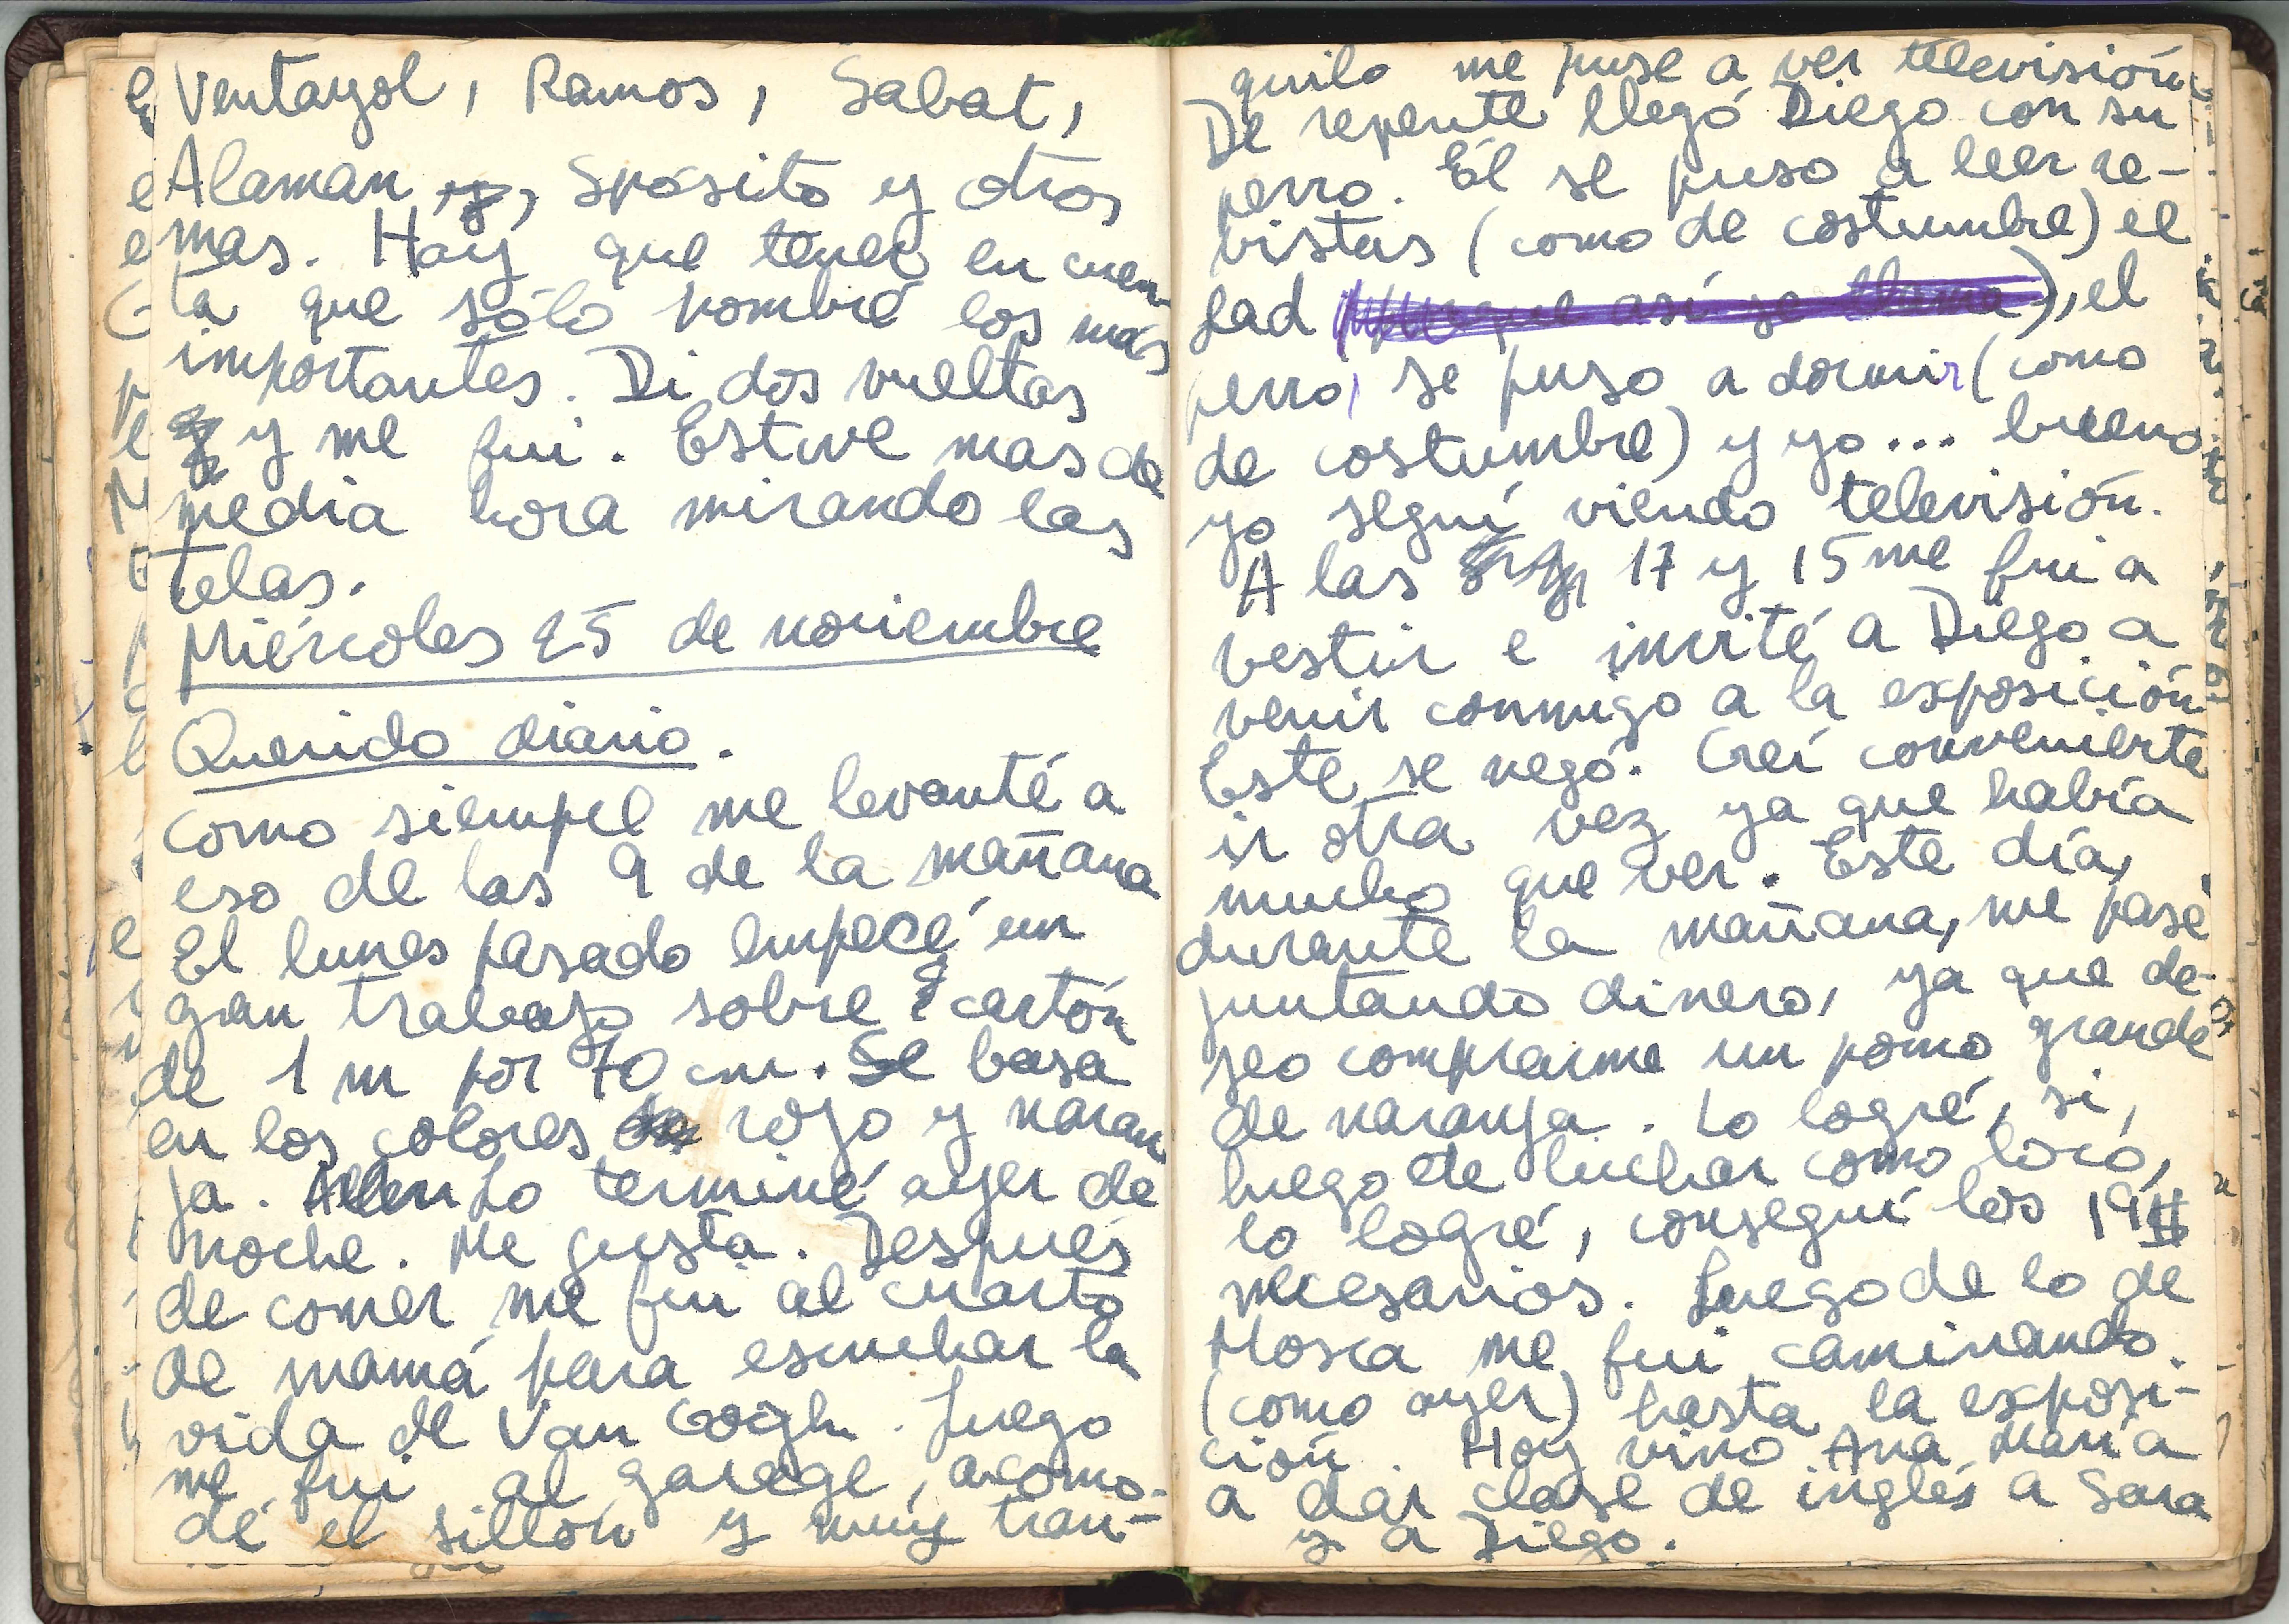 Ventayol, Ramos, Sabat,
Alaman y, Spósito y otros
mas. Hay que tener en cuen-
ta que sólo nombré los más
importantes. Di dos vueltas
y y me fui. Estuve mas de
media hora mirando las
telas.
Miércoles 25 de noviembre
Querido diario.
Como siempre me levanté a
eso de las 9 de la mañana
El lunes pasado empecé un
gran trabajo sobre cartón
de 1 m por 70 cm. Se basa
en los colores de rojo y naran
ja. Lo terminé ayer de
noche. Me gusta. Después
de comer me fui al cuarto
de mamá para escuchar la
vida de Van Gogh. Luego
me fui al garage, acomo-
dé el sillón y muy tran-
quilo me puse a ver televisión
De repente llegó Diego con su
perro. Él se puso a leer re-
vistas (como de costumbre) el
Lad porque así se llama), el
perro, se puso a dormir (como
de costumbre) y yo... bueno
yo seguí viendo televisión.
A las 17 y 15 me fui a
vestir e invité a Diego a
venir conmigo a la exposición
Este se negó. Creí conveniente
ir otra vez ya que había
mucho que ver. Este día,
durante la mañana, me pasé
juntando dinero, ya que de-
seo comprarme un pomo grande
de naranja. Lo logré, si,
luego de luchar como loco,
lo logré, conseguí los 19 $
necesarios. Luego de lo de
Mosca me fui caminando.
(como ayer) hasta la exposi-
ción. Hoy vino Ana María
a dar clase de inglés a Sara
y a Diego.